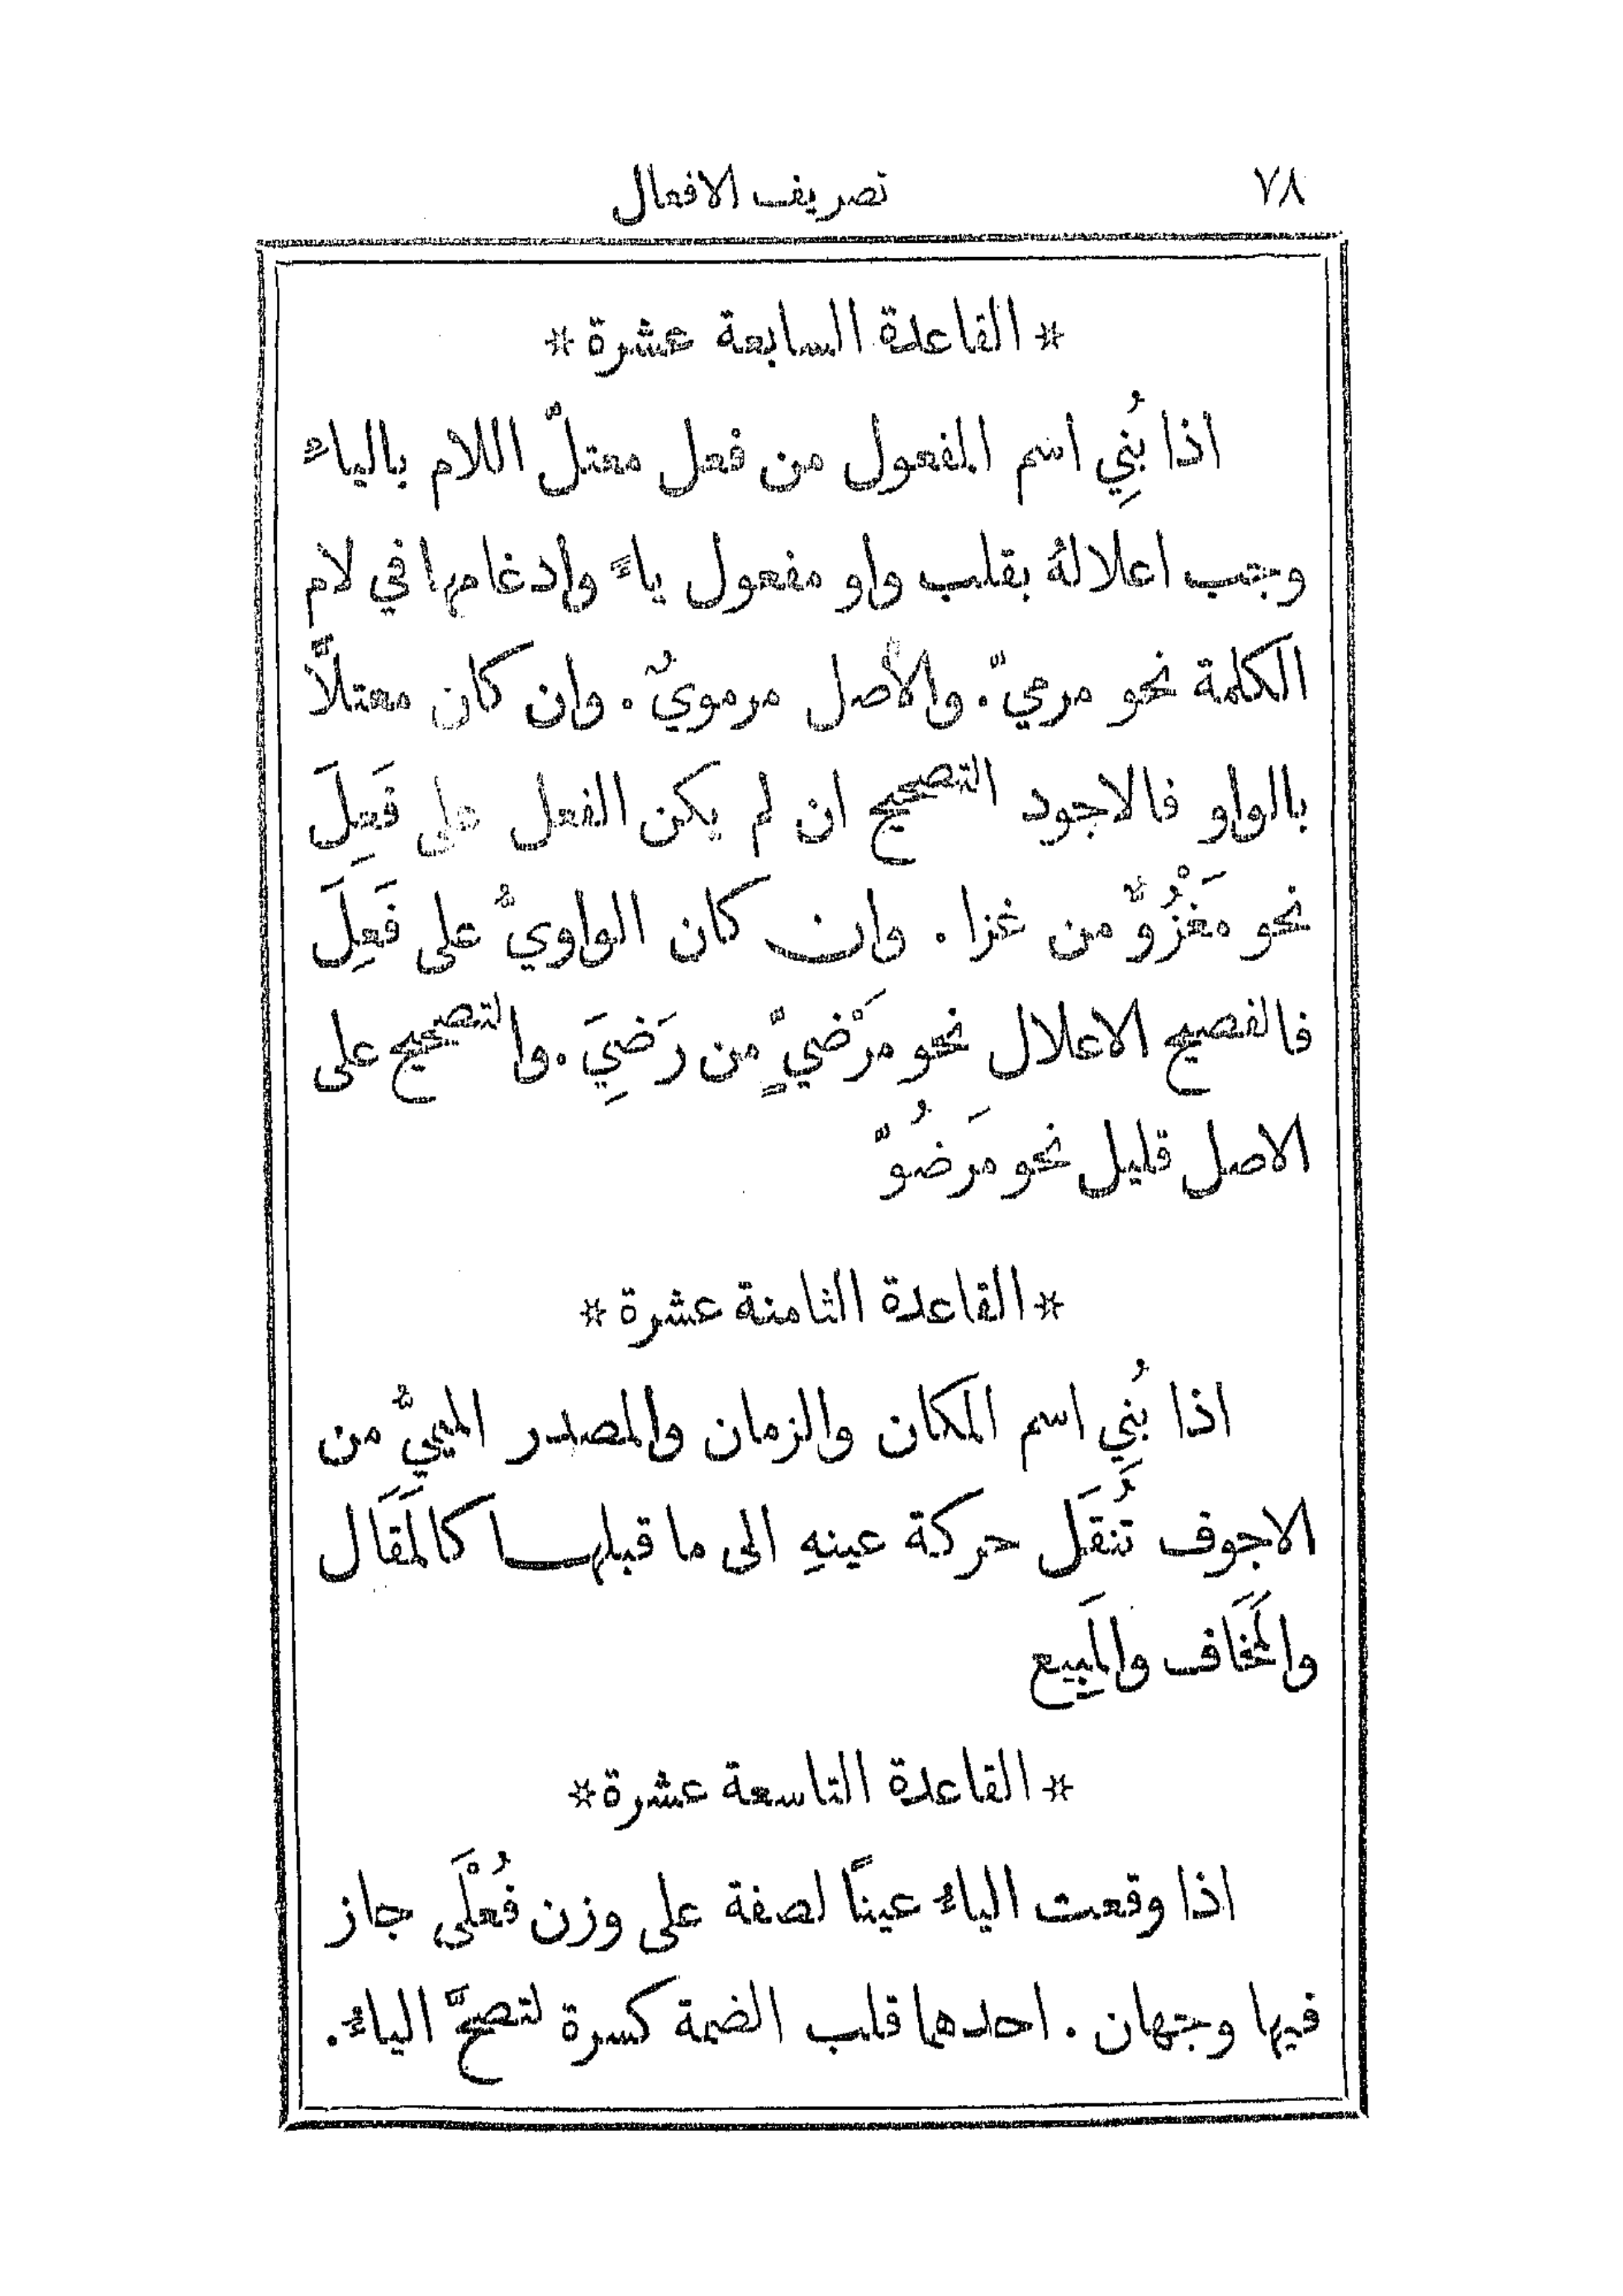 ٧٨ تصريف الافعال
* القاعدة السابعة عشرة *
اذا بُنِي اسم المفعول من فعل معتلّ اللام بالياءِ
وجب اعلالهُ بقلب واو مفعول ياءً وادغامها في لام
الكلمة نحو مرميّ. والأصل مرمويٌ. وان كان معتلًّا
بالواو فالاجود التصحيح ان لم يكن الفعل على فَعِلَ
نحو مَغْزُوٌّ من غزا. وان كان الواويُّ على فَعِلَ
فالفصيح الاعلال نحو مَرْضيٍّ من رَضِيَ. والتصحيح على
الاصل قليل نحو مَرضُوّ
* القاعدة الثامنة عشرة *
اذا بُنِي اسم المكان والزمان والمصدر الميميُّ من
الاجوف تُنقَل حركة عينهِ الى ما قبلها كالمَقَال
والمَخَاف والمَبِيع
* القاعدة التاسعة عشرة *
اذا وقعت الياءُ عينًا لصفة على وزن فُعْلَى جاز
فيها وجهان. احدهما قلب الضمة كسرة لتصحَّ الياءُ.